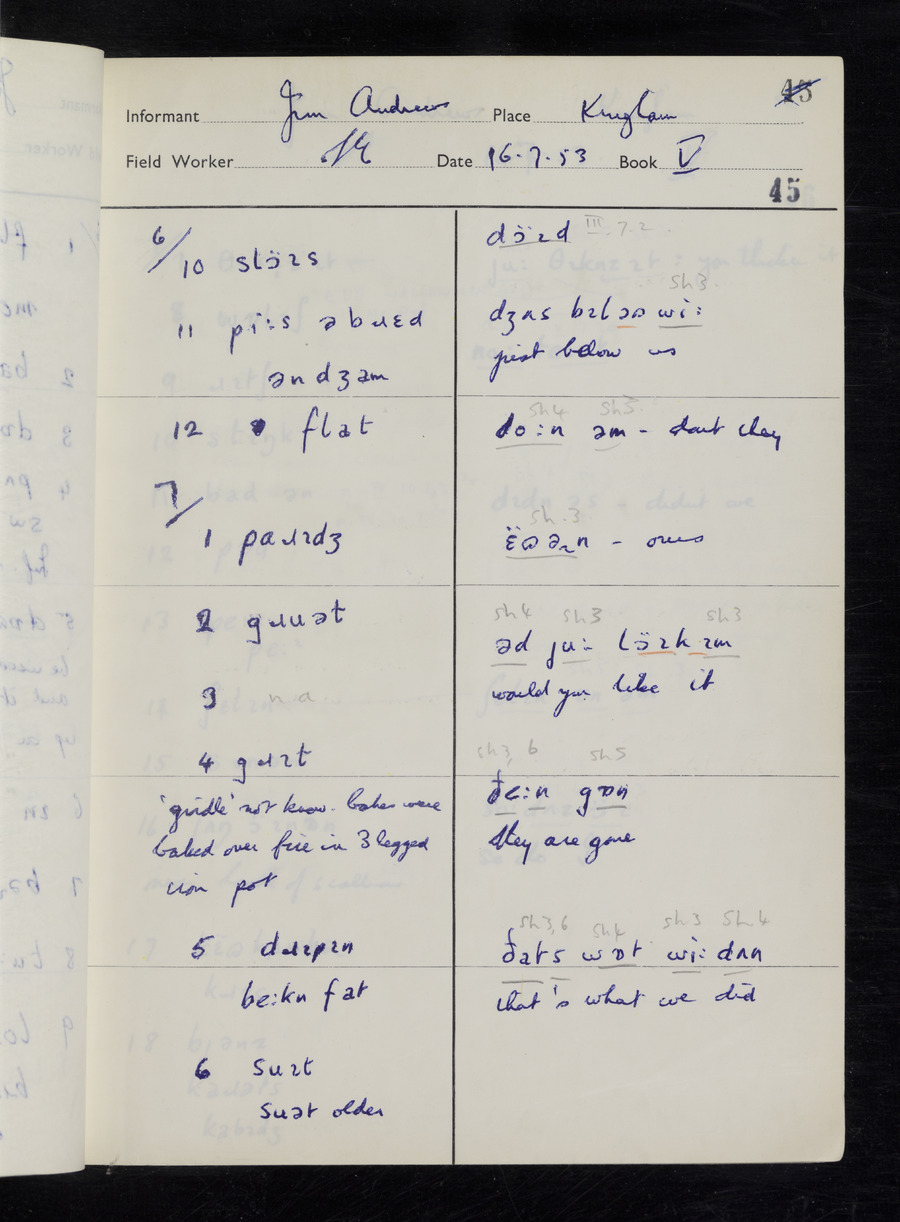 45
Informant Jim Andrews Place Kingham
Field Worker Date 16.7.53 Book V
45
6/
10 slɔ̈ɪs
11 pi:s əbɹɛd
ən dʒam
12 flat
7/
1 paɹɪdʒ
2 gɹuət
3 n a
4 gɹɪt
'gridle' not know. bakes were
baked over fire in 3 legged
iron pot
5 dɹɪpɪn
be:kn fat
6 suɪt
suət older
dɔ̈ɪd III.7.2
sh3
dʒʌs bɪləʊ wi:
just below us
sh4 sh5
do:n əm - dont they
sh.3
ɛ̈ʊəɪn - ours
sh4 sh3 sh3
əd ju: lɔ̈ɪk ɪm
would you like it
sh3, 6 sh5
ðe:n gɒn
they are gone
sh3,6 sh4 sh3 sh.4
ðats wɒt wi: dʌn
that's what we did